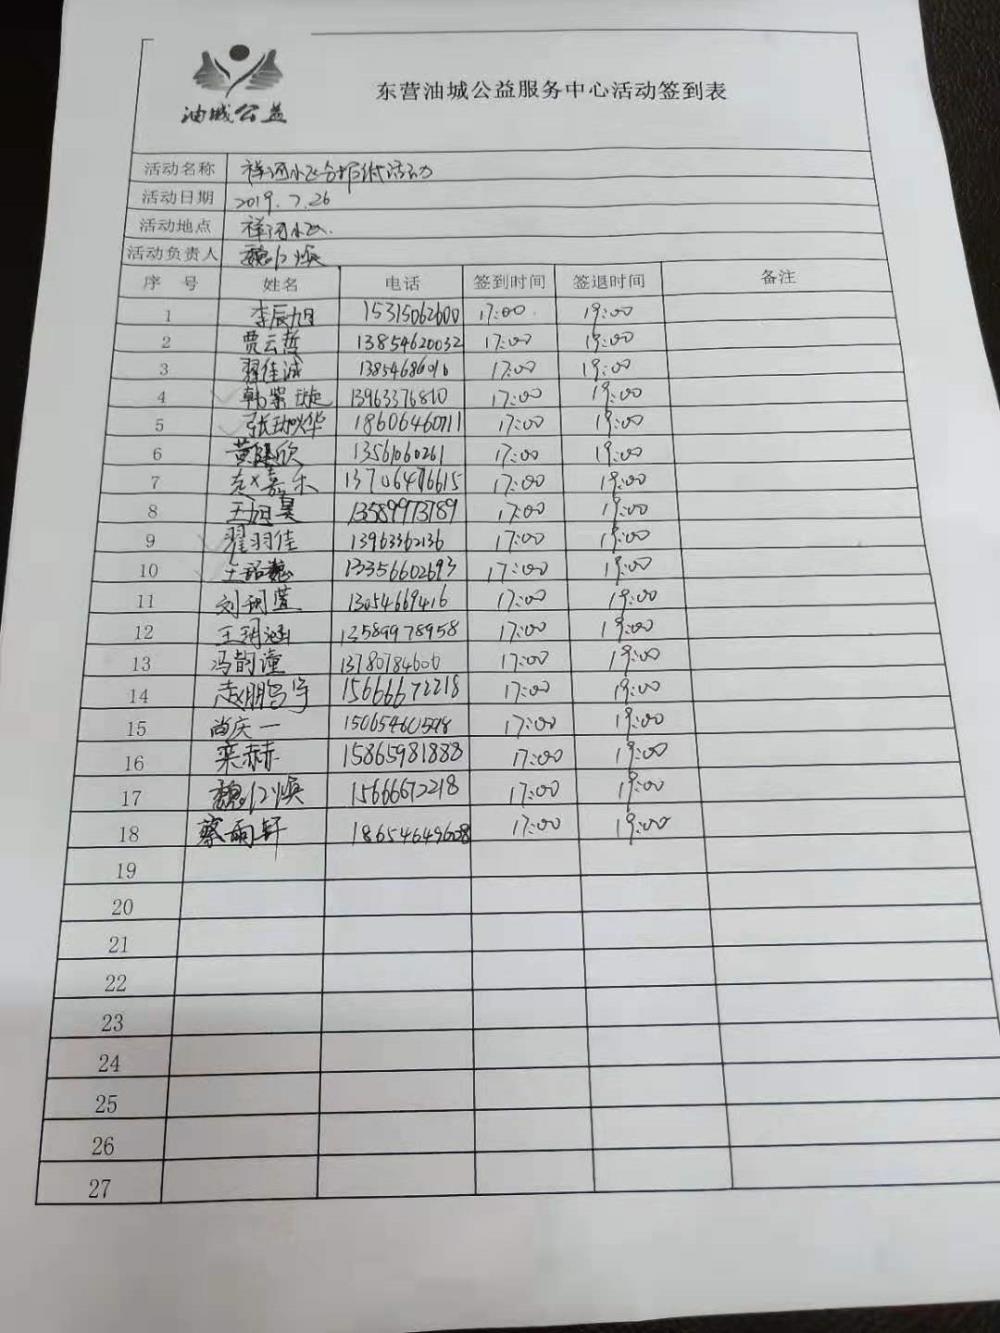 油城公益
东营油城公益服务中心活动签到表
活动名称 祥河小区合唱活动
活动日期 2019.7.26
活动地点 祥河小区
活动负责人 魏仁焕
序 号 姓名 电话 签到时间 签退时间 备注
1 李辰旭 15315062600 17:00 19:00
2 贾云哲 13854620032 17:00 19:00
3 翟佳诚 17:00 19:00
4 韩 13963376810 17:00 19:00
5 张 18606460711 17:00 19:00
6 黄 欣 13561060261 17:00 19:00
7 赵嘉乐 17:00 19:00
8 王旭昊 13589973789 17:00 19:00
9 翟羽佳 13963362136 17:00 19:00
10 王 13356602693 17:00 19:00
11 刘 萱 13054669416 17:00 19:00
12 王玥涵 13589978958 17:00 19:00
13 冯韵潼 17:00 19:00
14 赵鹏宇 15666672218 17:00 19:00
15 尚庆一 15065460598 17:00 19:00
16 栾赫 15865981888 17:00 19:00
17 魏仁焕 15666672218 17:00 19:00
18 蔡雨轩 17:00 19:00
19
20
21
22
23
24
25
26
27